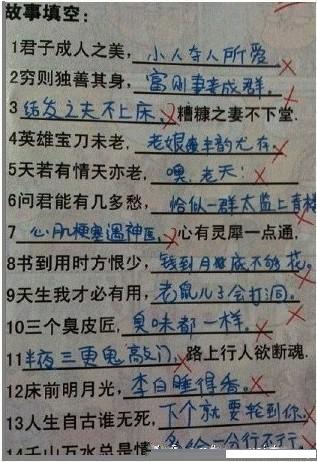 故事填空:
1君子成人之美，小人夺人所爱
2穷则独善其身，富则妻妾成群。
3结发之夫不上床，糟糠之妻不下堂.
4英雄宝刀未老，老娘丰韵尤存。
5天若有情天亦老，噢，老天！
6问君能有几多愁，恰似一群太监上青楼
7心肌梗塞遇神医，心有灵犀一点通，
8书到用时方恨少，钱到月底不够花。
9天生我才必有用，老鼠儿子会打洞。
10三个臭皮匠，臭味都一样。
11半夜三更鬼敲门，路上行人欲断魂.
12床前明月光，李白睡得香。
13人生自古谁无死，下个就要轮到你.
14千山万水总是情 多给一分行不行.